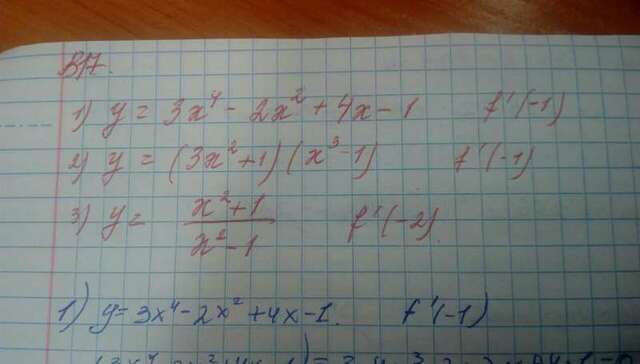 В17.
1) y = 3x⁴ - 2x² + 4x - 1 f'(-1)
2) y = (3x² + 1)(x³ - 1) f'(-1)
3) y = x² + 1 / x² - 1 f'(-2)
1) y = 3x⁴ - 2x² + 4x - 1. f'(-1)